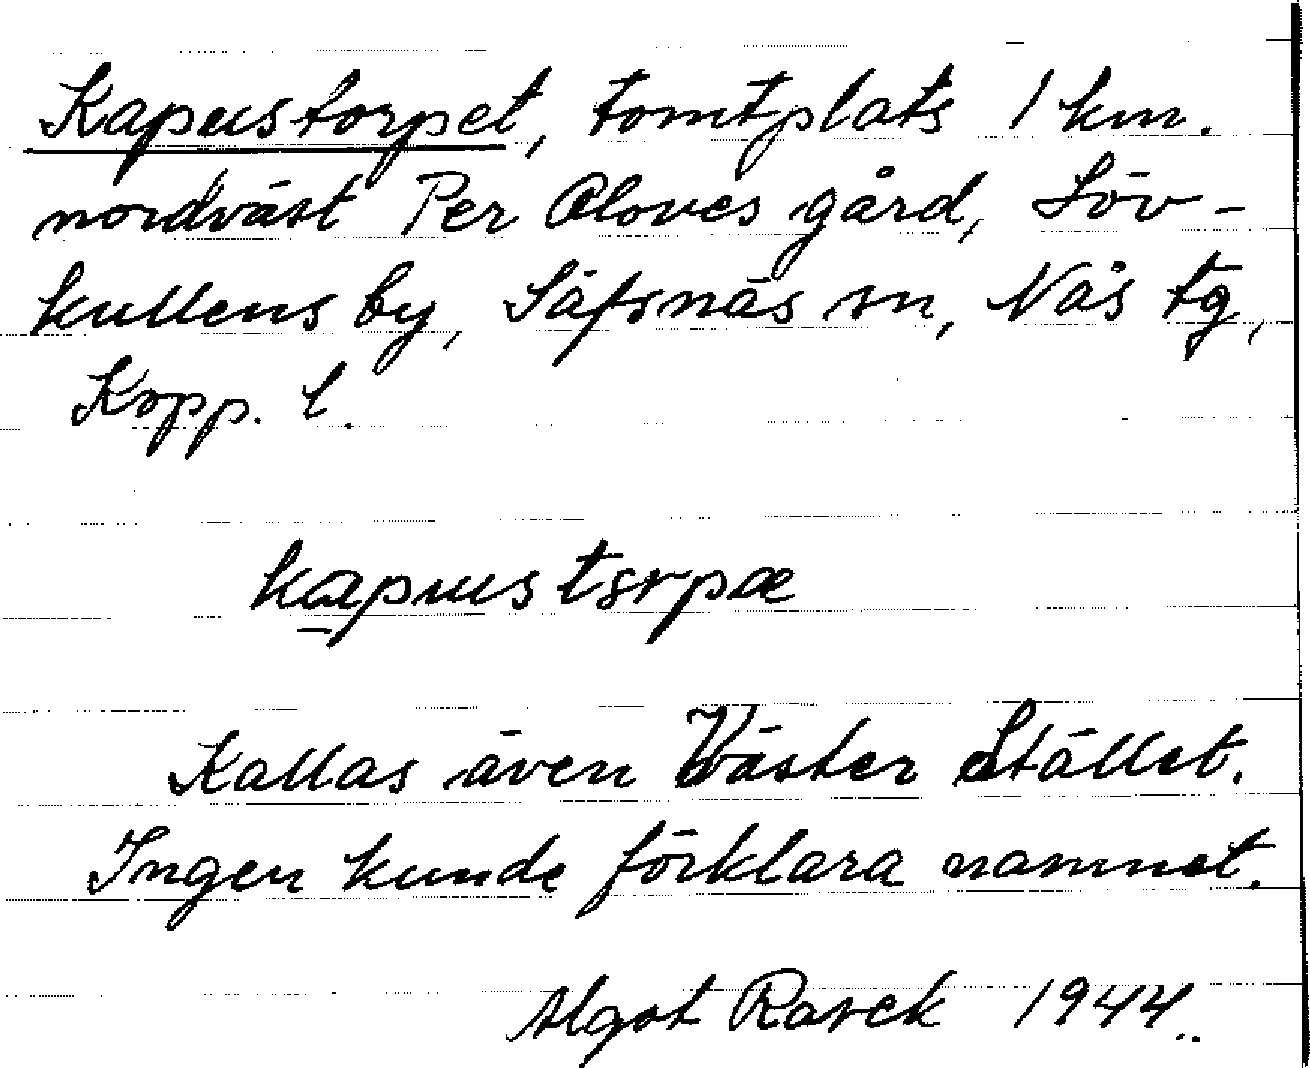 Kapustorpet, tomtplats 1 km.
nordväst Per Oloves gård, Löv-
kullens by, Säfsnäs sn, Nås tg,
Kopp. l.
kapustorpæ
Kallas även Väster Stället.
Ingen kunde förklara namnet.
Algot 1944.